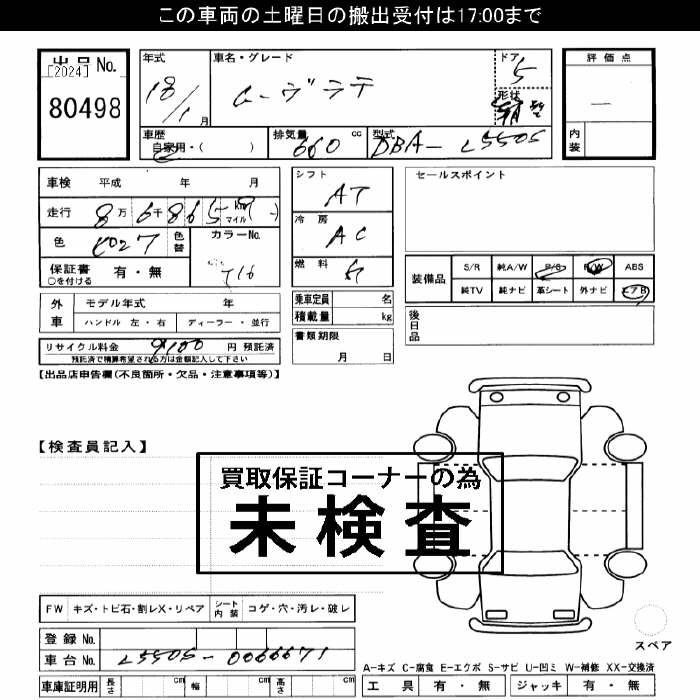 この車両の土曜日の搬出受付は17:00まで
出品 No.
[2024]
80498
年式
18/1月
車名・グレード
ムーヴラテ
ドア
5
形状
評価点
内装
車歴
自家用・( )
排気量
660 cc
型式
DBA-L550S
車検 平成 年 月
走行 8万6千865 km マイル
色
色替
カラーNo.
T16
保証書
○を付ける
有・無
シフト
AT
冷房
AC
燃料
ガ
セールスポイント
装備品
S/R 純A/W P/S P/W ABS
純TV 純ナビ 革シート 外ナビ エアB
外車
モデル年式 年
ハンドル 左・右 ディーラー・並行
乗車定員 名
積載量 kg
後日品
リサイクル料金 9100 円 預託済
預託済で精算希望される方は金額記入して下さい
書類期限
月 日
【出品店申告欄(不良箇所・欠品・注意事項等)】
【検査員記入】
買取保証コーナーの為
未検査
FW キズ・トビ石・割レX・リペア シート内装 コゲ・穴・汚レ・破レ
登録 No.
車台 No. L550S-0066671
車庫証明用 長さ cm 幅 cm 高さ cm
スペア
A-キズ C-腐食 E-エクボ S-サビ U-凹ミ W-補修 XX-交換済
工具 有・無 ジャッキ 有・無